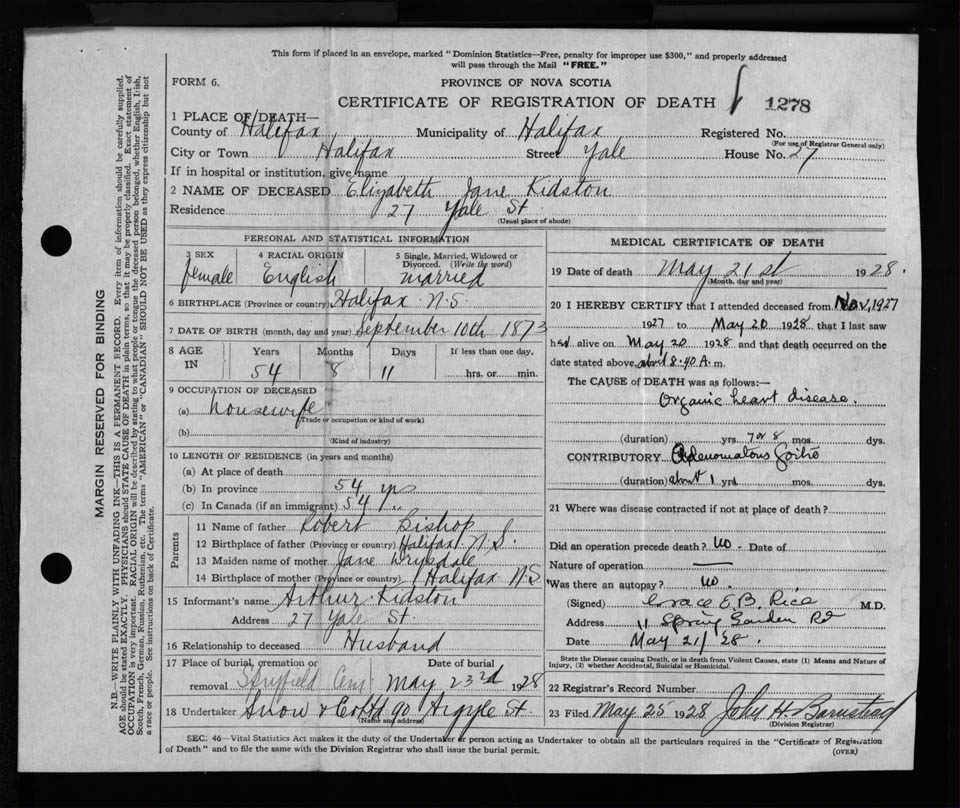 This form if placed in an envelope, marked "Dominion Statistics—Free, penalty for improper use $300," and properly addressed
will pass through the Mail "FREE."
FORM 6.
PROVINCE OF NOVA SCOTIA
CERTIFICATE OF REGISTRATION OF DEATH 1278
1 PLACE OF DEATH—
County of Halifax Municipality of Halifax Registered No.
(For use of Registrar General only)
City or Town Halifax Street Yale House No. 27
If in hospital or institution, give name
2 NAME OF DECEASED Elizabeth Jane Kidston
Residence 27 Yale St
(Usual place of abode)
PERSONAL AND STATISTICAL INFORMATION
3 SEX 4 RACIAL ORIGIN 5 Single, Married, Widowed or
Divorced. (Write the word)
female English married
6 BIRTHPLACE (Province or country) Halifax N.S.
7 DATE OF BIRTH (month, day and year) September 10th 1873
8 AGE IN Years Months Days If less than one day,
54 8 11 hrs. or min.
9 OCCUPATION OF DECEASED
(a) housewife
(Trade or occupation or kind of work)
(b)
(Kind of industry)
10 LENGTH OF RESIDENCE (in years and months)
(a) At place of death
(b) In province 54 yrs
(c) In Canada (if an immigrant) 54 "
Parents
11 Name of father Robert Bishop
12 Birthplace of father (Province or country) Halifax N.S.
13 Maiden name of mother Jane Drysdale
14 Birthplace of mother (Province or country) Halifax N.S
15 Informant's name Arthur Kidston
Address 27 Yale St.
16 Relationship to deceased Husband
17 Place of burial, cremation or Date of burial
removal Cem May 23rd 1928
18 Undertaker Snow & Co Ltd 90 Argyle St.
(Name and address)
MEDICAL CERTIFICATE OF DEATH
19 Date of death May 21st 1928.
(Month, day and year)
20 I HEREBY CERTIFY that I attended deceased from Nov, 1927
1927 to May 20 1928 that I last saw
her alive on May 20 1928 and that death occurred on the
date stated above, about 8.40 A. m.
The CAUSE OF DEATH was as follows:—
Organic heart disease.
(duration) yrs. 7 or 8 mos. dys.
CONTRIBUTORY Adenomatous Goitre
(duration) about 1 yrs. mos. dys.
21 Where was disease contracted if not at place of death?
Did an operation precede death? no. Date of
Nature of operation —
Was there an autopsy? no.
(Signed) Grace E. B. Rice M.D.
Address 11 Spring Garden Rd
Date May 21/28.
State the Disease causing Death, or in death from Violent Causes, state (1) Means and Nature of
Injury, (2) whether Accidental, Suicidal or Homicidal.
22 Registrar's Record Number
23 Filed May 25 1928 John H. Barnstead
(Division Registrar)
SEC. 46—Vital Statistics Act makes it the duty of the Undertaker or person acting as Undertaker to obtain all the particulars required in the "Certificate of Registration
of Death" and to file the same with the Division Registrar who shall issue the burial permit.
(OVER)
MARGIN RESERVED FOR BINDING
N.B.—WRITE PLAINLY WITH UNFADING INK—THIS IS A PERMANENT RECORD. Every item of information should be carefully supplied.
AGE should be stated EXACTLY. PHYSICIANS should STATE CAUSE OF DEATH in plain terms, so that it may be properly classified. Exact statement of
OCCUPATION is very important. RACIAL ORIGIN will be described by stating to what people or tongue the deceased person belonged, whether English, Irish,
Scotch, French, German, Russian, Ruthenian, etc. The terms "AMERICAN" or "CANADIAN" SHOULD NOT BE USED as they express citizenship but not
a race or people. See instructions on back of Certificate.